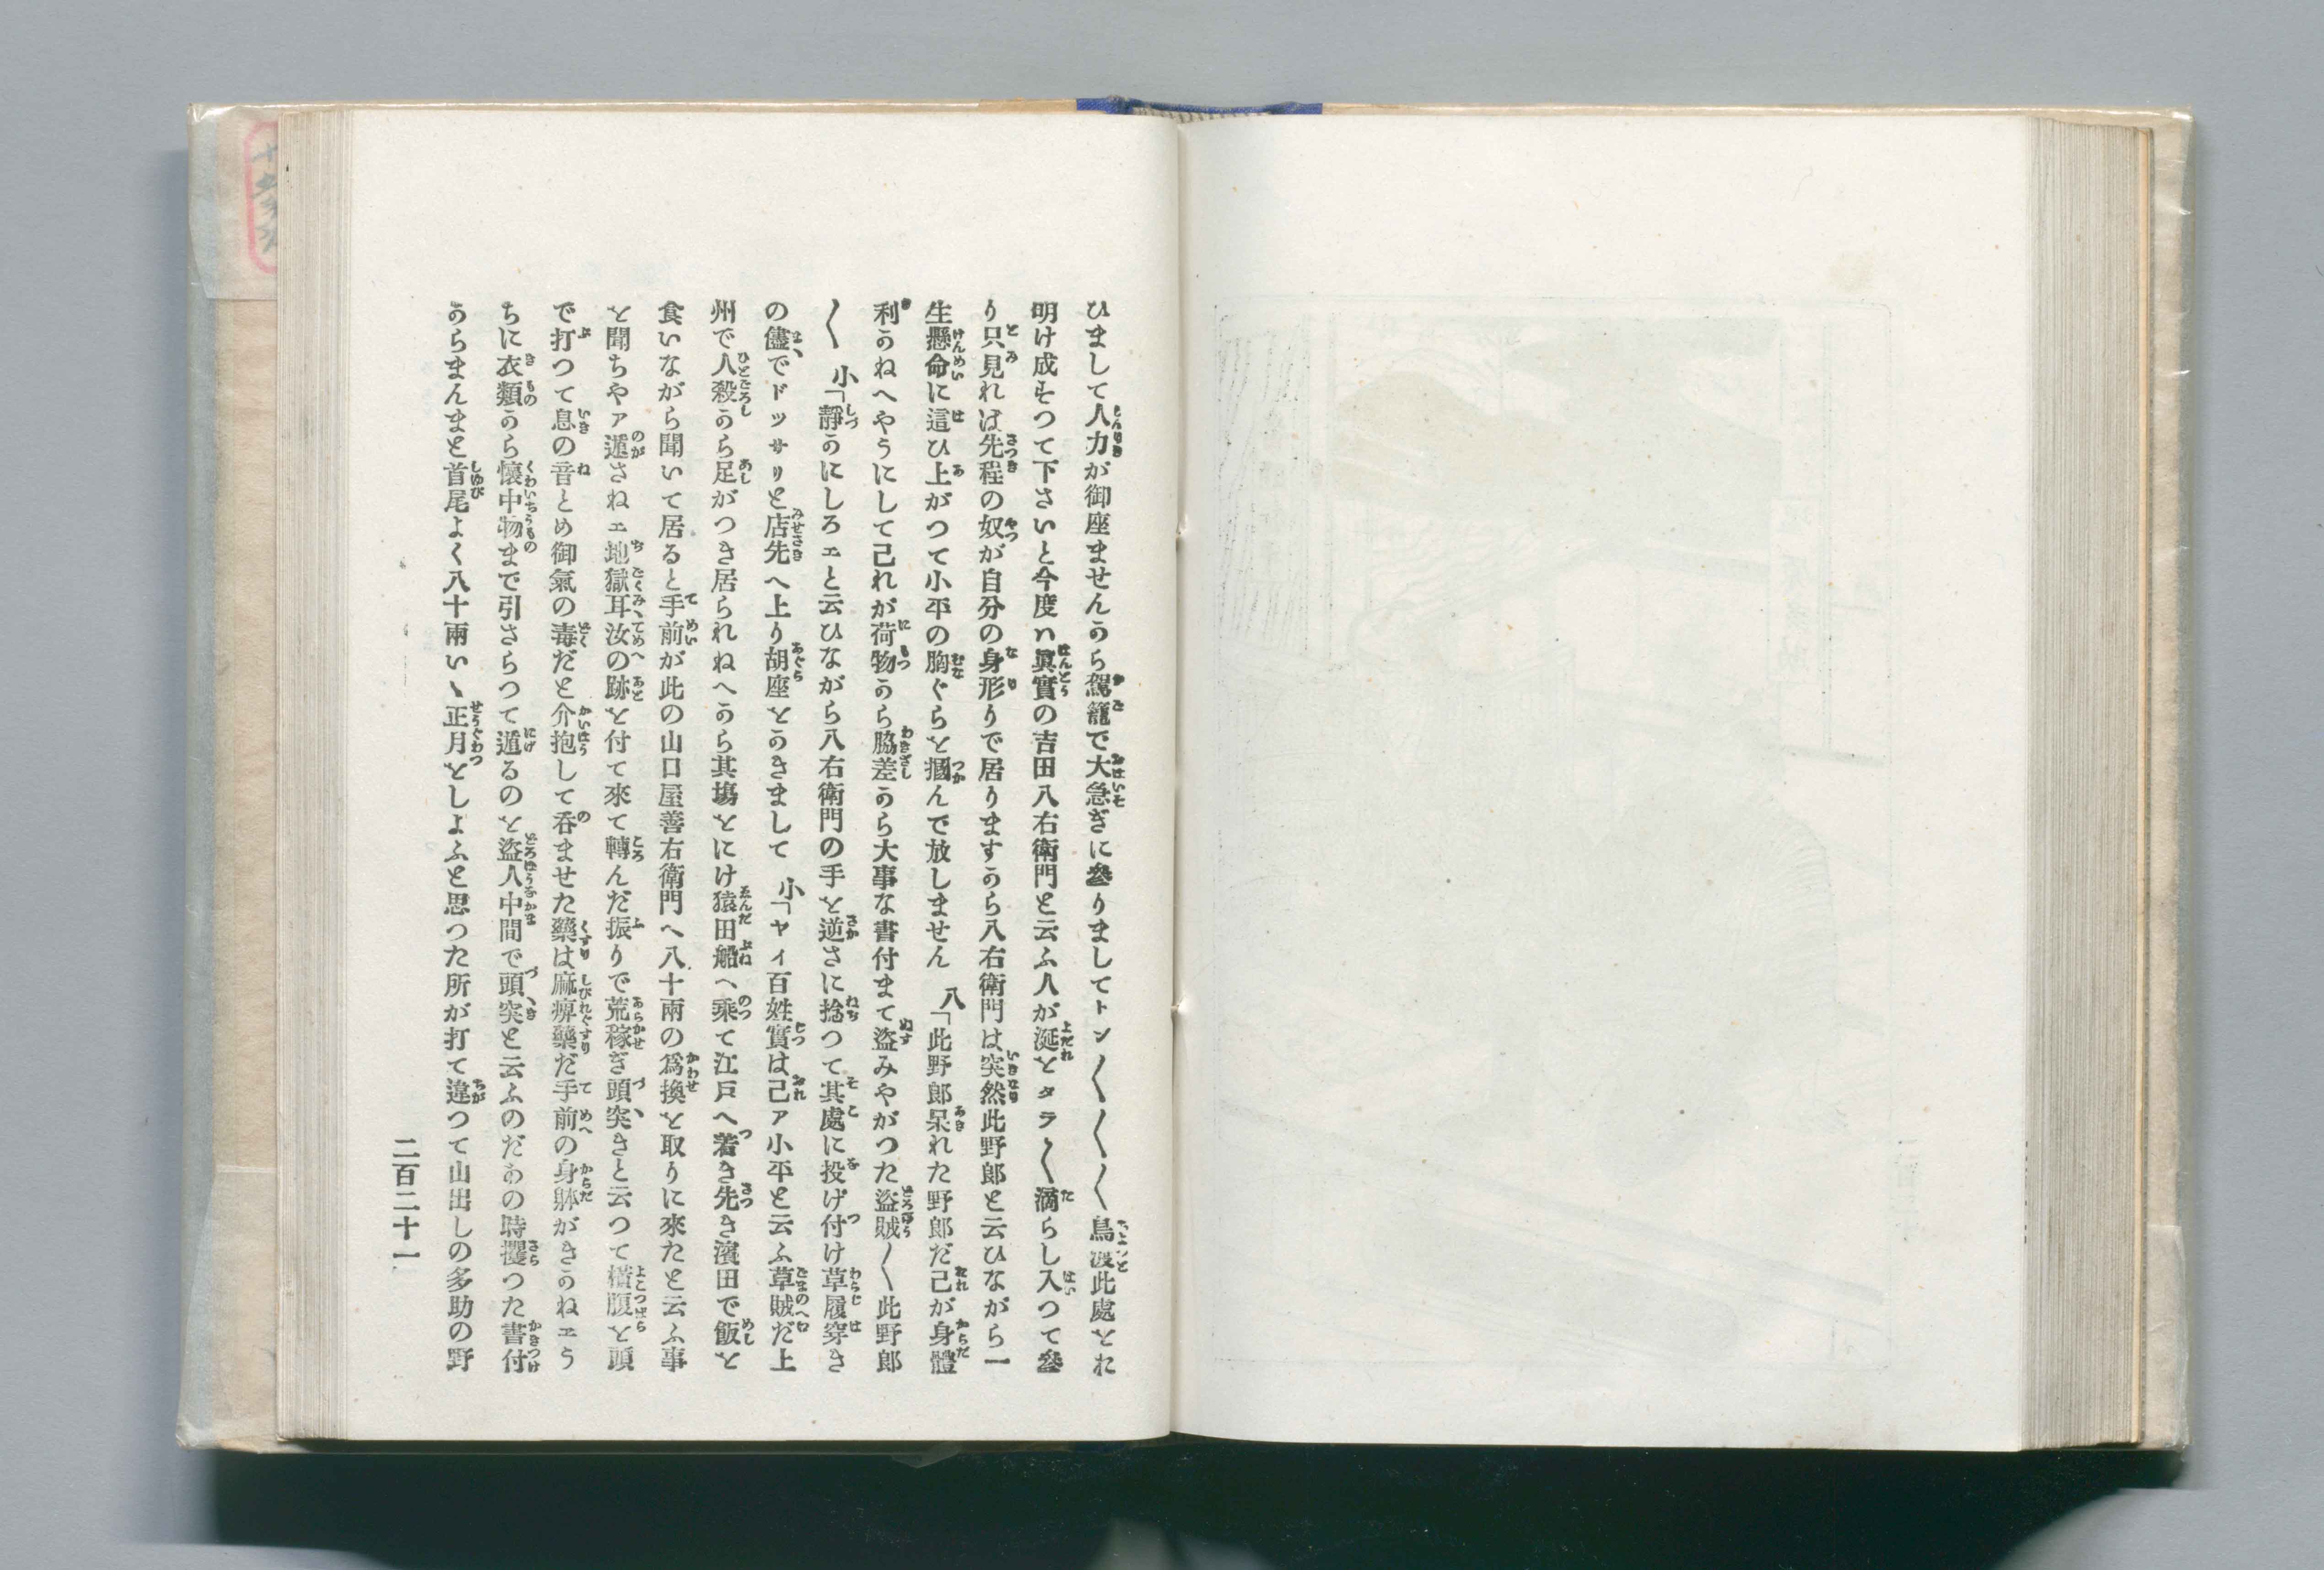 ひまして人力が御座ませんから駕籠で大急ぎに參りましてトン〱〱〱鳥渡此處をれ
明け成すつて下さいと今度ハ眞實の吉田八右衛門と云ふ人が涎をタラ〱滴らし入つて參
り只見れば先程の奴が自分の身形りで居りますから八右衛門は突然此野郎と云ひながら一
生懸命に這ひ上がつて小平の胸ぐらを摑んで放しません　八「此野郎呆れた野郎だ己が身體
利かねへやうにして己れが荷物から脇差から大事な書付まて盜みやがつた盜賊〱此野郎
〱　小「靜かにしろエと云ひながら八右衛門の手を逆さに捻つて其處に投げ付け草履穿き
の儘でドッサリと店先へ上り胡座をかきまして　小「ヤイ百姓實は己ァ小平と云ふ草賊だ上
州で人殺から足がつき居られねへから其塲をにけ猿田船へ乘て江戸へ着き先き濱田で飯を
食いながら聞いて居ると手前が此の山口屋善右衛門へ八十兩の爲換を取りに來たと云ふ事
を聞ちやァ遁さねェ地獄耳汝の跡を付て來て轉んだ振りで荒稼ぎ頭突きと云つて橫腹を頭
で打つて息の音とめ御氣の毒だと介抱して呑ませた藥は麻痺藥だ手前の身躰がきかねエう
ちに衣類から懷中物まで引さらつて遁るのを盜人中間で頭突と云ふのだあの時攫つた書付
からまんまと首尾よく八十兩いゝ正月をしよふと思つた所が打て違つて山出しの多助の野
二百二十一